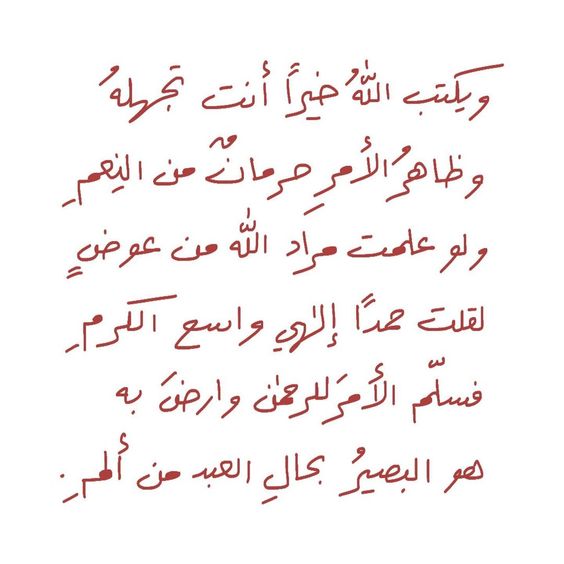 ويكتب اللّٰهُ خيرًا أنت تجهلهُ
وظاهرُ الأمرِ حرمانٌ من النِعمِ
ولو علمت مراد اللّٰه من عوضٍ
لقلت حمدًا إلٰهي واسع الكرمِ
فسلّم الأمرَ للرحمٰن وارضَ به
هو البصيرُ بحالِ العبد من ألمِ.